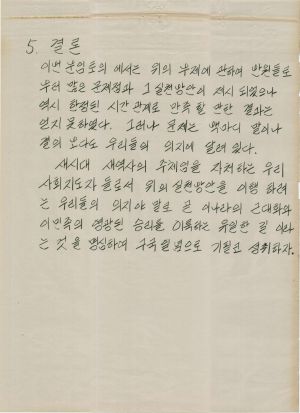 5. 결론
이번 분임토의 에서는 위의 부제에 관하여 반원들로
부터 많은 문제점과 그 실천방안이 제시 되었으나
역시 한정된 시간 관계로 만족 할 만한 결과는
얻지 못하였다. 그러나 문제는 백마디 말이나
결의 보다도 우리들의 의지에 달려 있다.
새시대 새역사의 주체임을 자처하는 우리
사회지도자 들로서 위의 실천방안을 이행 하려
는 우리들의 의지야 말로 곧 이나라의 근대화와
이민족의 영광된 승리를 이룩하는 유일한 길 이라
는 것을 명심하여 구국 일념으로 기필코 성취하자.